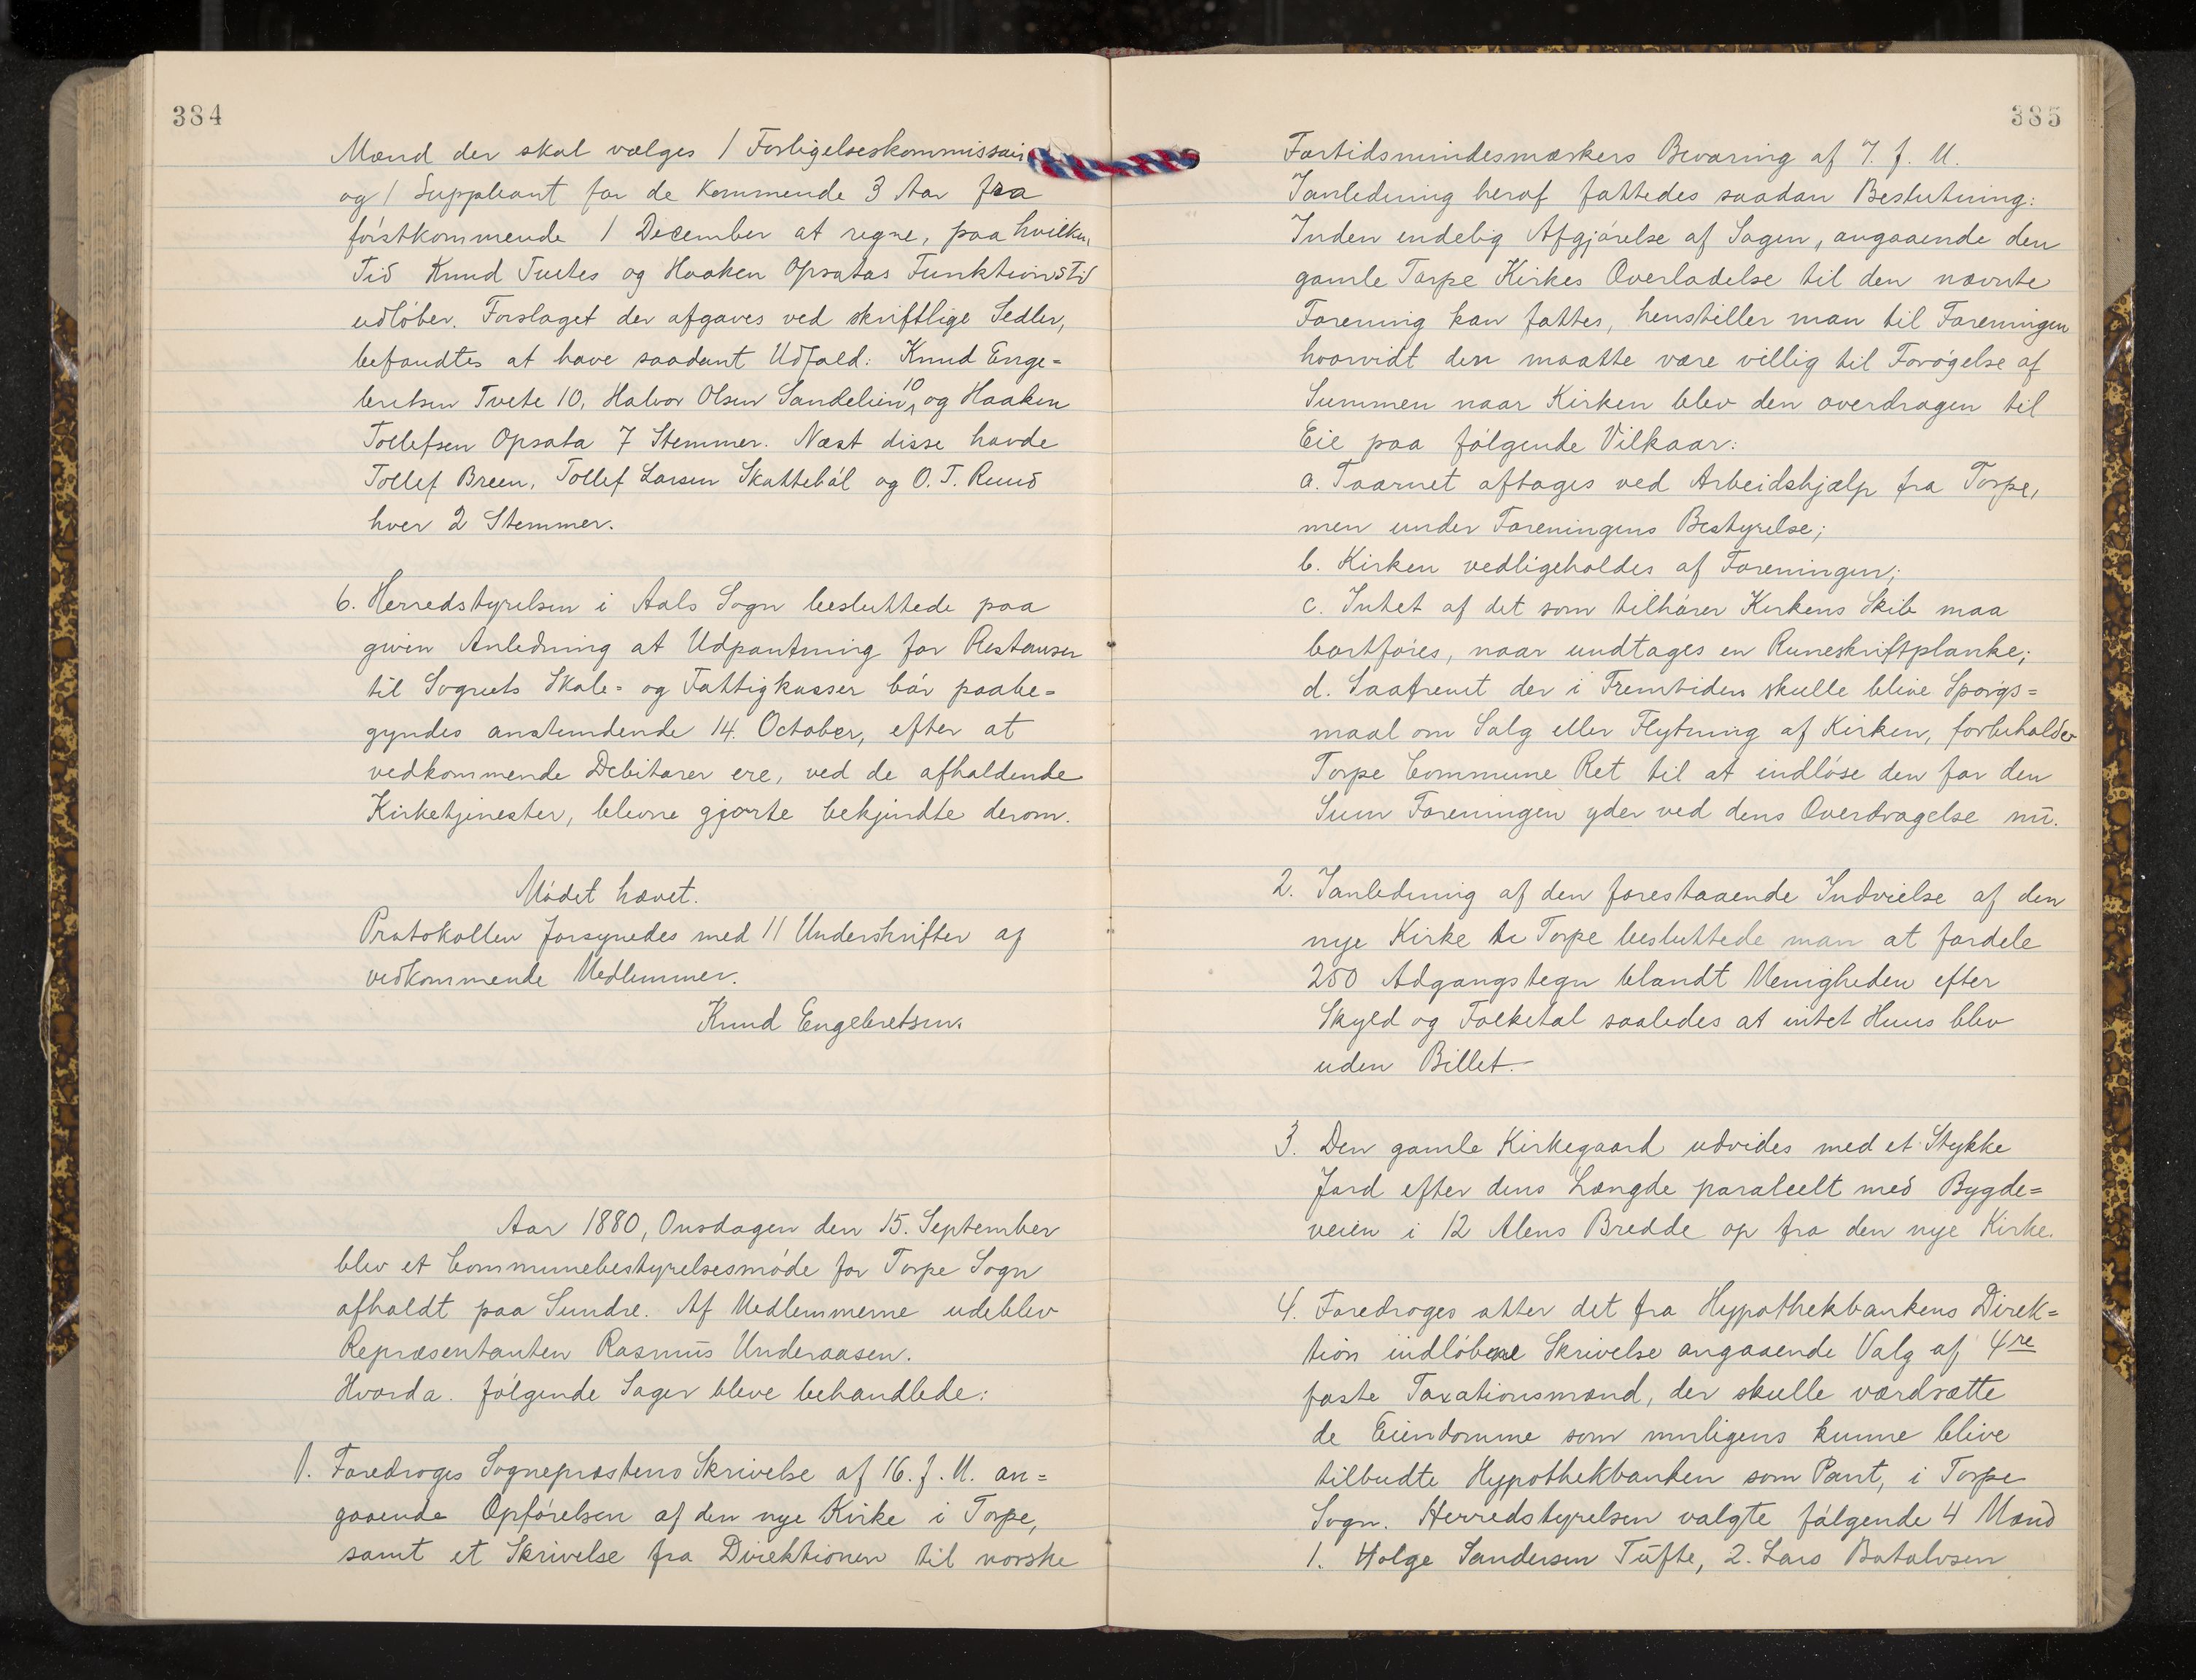 384
Mænd der skal vælges 1 Forligelseskommissair
og 1 Suppleant for de kommende 3 Aar fra
førstkommende 1 December at regne, paa hvilken
Tid Knud Tuetes og Haaken Opsatas Funktionstid
udløber. Forslaget der afgaves ved skriftlige Sedler,
befandtes at have saadant Udfald: Knud Enge=
bretsen Tvete 10, Halvor Olsen Sandelien 10, og Haaken
Tollefsen Opsata 7 Stemmer. Næst disse havde
Tollef Breen, Tollef Larsen Skattebøl og O. T. Ruud
hver 2 Stemmer.
6. Herredstyrelsen i Aals Sogn besluttede paa
given Anledning at Udpantning for Restanser
til Sognets Skole= og Fattigkasser bør paabe=
gyndes anstundende 14. October, efter at
vedkommende Debitorer ere, ved de afholdende
Kirketjenester, blevne gjorte bekjendte derom.
Mødet hævet.
Protokollen forsynedes med 11 Underskrifter af
vedkommende Medlemmer.
Knud Engebretsen.
Aar 1880, Onsdagen den 15. September
blev et Communebestyrelsesmøde for Torpe Sogn
afholdt paa Sundre. Af Medlemmerne udeblev
Repræsentanten Rasmus Underaasen.
Hvorda følgende Sager bleve behandlede:
1. Foredroges Sogneprestens Skrivelse af 16. f. M. an=
gaaende Opførelsen af den nye Kirke i Torpe,
samt et Skrivelse fra Direktionen til norske
385
Fortidsmindesmærkers Bevaring af 7. f. M.
Ianledning heraf fattedes saadan Beslutning:
Inden endelig Afgjørelse af Sagen, angaaende den
gamle Torpe Kirkes Overladelse til den nævnte
Forening kan fattes, henstiller man til Foreningen
hvorvidt den maatte være villig til Forøgelse af
Summen naar Kirken blev den overdragen til
Eie paa følgende Vilkaar:
a. Taarnet aftages ved Arbeidshjælp fra Torpe,
men under Foreningens Bestyrelse;
b. Kirken vedligeholdes af Foreningen;
c. Intet af det som tilhører Kirkens Skib maa
bortføres, naar undtages en Runeskriftplanke;
d. Saafremt der i Fremtiden skulle blive Spørgs=
maal om Salg eller Flytning af Kirken, forbeholder
Torpe Commune Ret til at indløse den for den
Sum Foreningen yder ved dens Overdragelse nu.
2. Ianledning af den forestaaende Indvielse af den
nye Kirke i Torpe besluttede man at fordele
250 Adgangstegn blandt Menigheden efter
Skyld og Folketal saaledes at intet Huus blev
uden Billet.
3. Den gamle Kirkegaard udvides med et Stykke
Jord efter dens Længde paraleelt med Bygde=
veien i 12 Alens Bredde op fra den nye Kirke.
4. Foredroges atter det fra Hypothekbankens Direk=
tion indløbene Skrivelse angaaende Valg af 4re
faste Taxationsmænd, der skulle værdsætte
de Eiendomme som muligens kunne blive
tilbudte Hypothekbanken som Pant, i Torpe
Sogn. Herredstyrelsen valgte følgende 4 Mænd
1. Holge Sandersen Tufte, 2. Lars Botolvsen